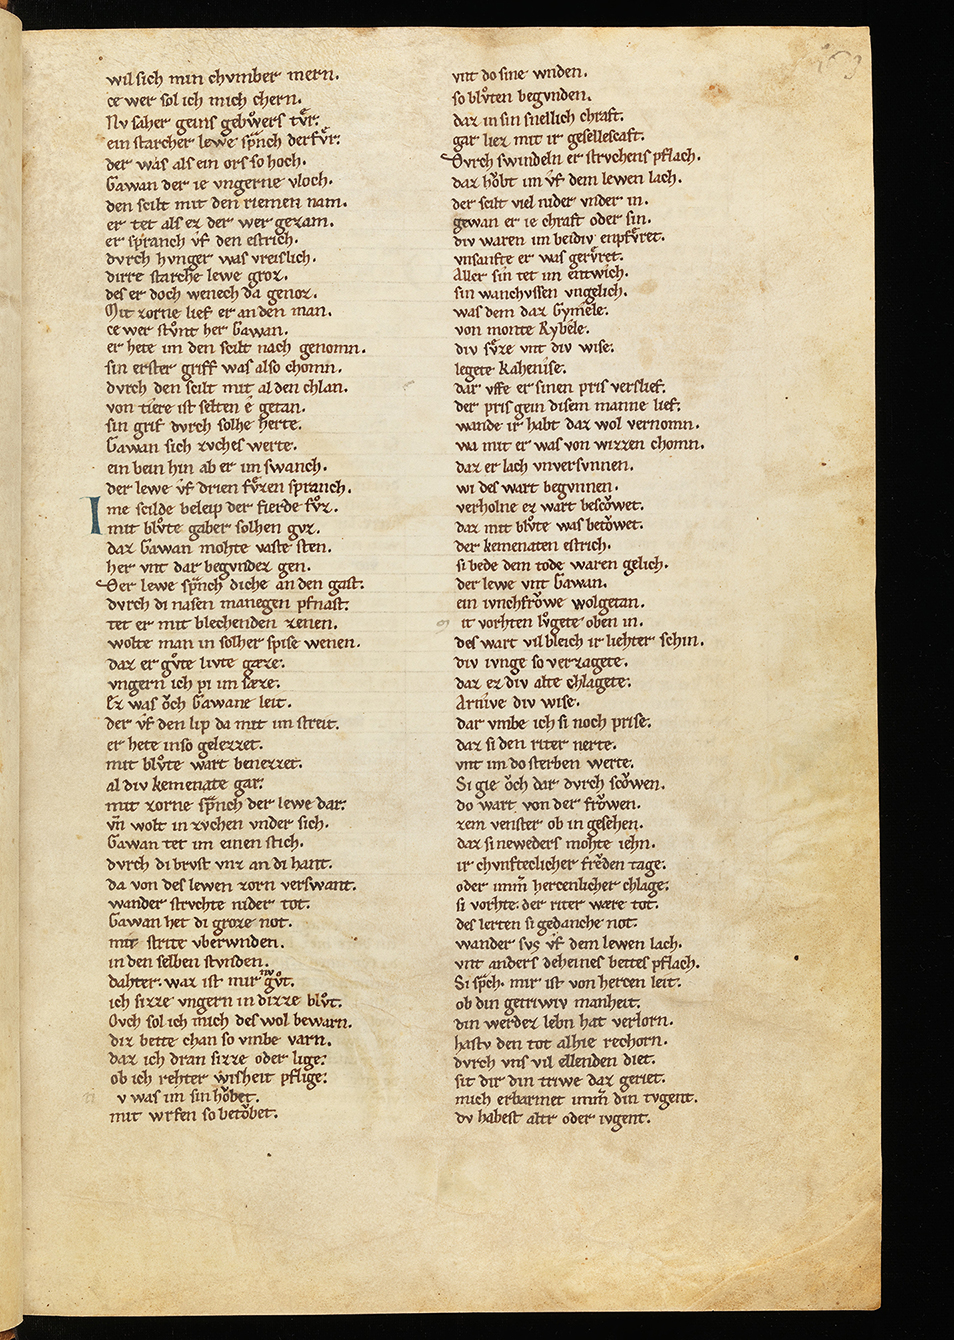 wil sich min chvmber mern.
ce wer sol ich mich chern.
Nv saher geins gebvͦers tvͤr.
ein starcher lewe sp̄nch derfvͤr.
der was als ein ors so hoch.
Gawan der ie vngerne vloch.
den scilt mit den riemen nam.
er tet als ez der wer gezam.
er spranch vf den estrich.
dvrch hvnger was vreislich.
dirre starche lewe groz.
des er doch wenech da genoz.
Mit zorne lief er an den man.
ce wer stvͦnt her Gawan.
er hete im den scilt nach genomn.
sin erster griff was also chomn.
dvrch den scilt mit al den chlan.
von tiere ist selten é getan.
sin grif dvrch solhe herte.
Gawan sich zvches werte.
ein bein hin ab er im swanch.
der lewe vf drien fvͤzen spranch.
Ime scilde beleip der fierde fvͦz.
mit blvͦte gaber solhen gvz.
daz Gawan mohte vaste sten.
her vnt dar begvndez gen.
Der lewe sp̄nch diche an den gast.
dvrch di nasen manegen pfnast.
tet er mit blechenden zenen.
wolte man in solher spise wenen.
daz er gvͦte livte gæze.
vngern ich pi im sæze.
Ez was oͮch Gawane leit.
der vf den lip da mit im streit.
er hete inso gelezzet.
mit blvͦte wart benezzet.
al div kemenate gar.
mit zorne sp̄nch der lewe dar.
vn̄ wolt in zvchen vnder sich.
Gawan tet im einen stich.
dvrch di brvst vnz an di hant.
da von des lewen zorn verswant.
wander strvchte nider tot.
Gawan het di groze not.
mit strite vberwnden.
in den selben stvnden.
dahter. waz ist mir nv gvͦt.
ich sizze vngern in dizze blvͦt.
Ovch sol ich mich des wol bewarn.
diz bette chan so vmbe varn.
daz ich dran sizze oder lige.
ob ich rehter wisheit pflige.
v was im sin hoͮbet.
mit wrfen so betoͮbet.
vnt do sine wnden.
so blvͦten begvnden.
daz in sin snellich chraft.
gar liez mit ir gesellescaft.
Dvrch swindeln er strvchens pflach.
daz hoͮbt im vf dem lewen lach.
der scilt viel nider vnder in.
gewan er ie chraft oder sin.
div waren im beidiv enpfvͤret.
vnsanfte er was gervͤret.
Aller sin tet im entwich.
sin wanchvssen vngelich.
was dem daz Gymele.
von monte Rybele.
div svͤze vnt div wise.
legete kahenise.
dar vffe er sinen pris verslief.
der pris gein disem manne lief.
wande ir habt daz wol vernomn.
wa mit er was von wizzen chomn.
daz er lach vnversvnnen.
wi des wart begvnnen.
verholne ez wart bescoͮwet.
daz mit blvͦte was betoͮwet.
der kemenaten estrich.
si bede dem tode waren gelich.
der lewe vnt Gawan.
ein ivnchfroͮwe wolgetan.
it vorhten lvͦgete oben in.
des wart vil bleich ir liehter schin.
div ivnge so verzagete.
daz ez div alte chlagete.
Arnive div wise.
dar vmbe ich si noch prise.
daz si den riter nerte.
vnt im do sterben werte.
Si gie oͮch dar dvrch scoͮwen.
do wart von der froͮwen.
zem venster ob in gesehen.
daz si neweders mohte iehn.
ir chvnfteclicher frͤden tage.
oder imm̄ hercenlicher chlage.
si vorhte. der riter wære tot.
des lerten si gedanche not.
wander svs vf dem lewen lach.
vnt anders deheines bettes pflach.
Si sp̄ch. mir ist von hercen leit.
ob din getriwiv manheit.
din werdez lebn hat verlorn.
hastv den tot alhie rechorn.
dvrch vns vil ellenden diet.
sit dir din triwe daz geriet.
mich erbarmet imm̄ din tvgent.
dv habest altr oder ivgent.